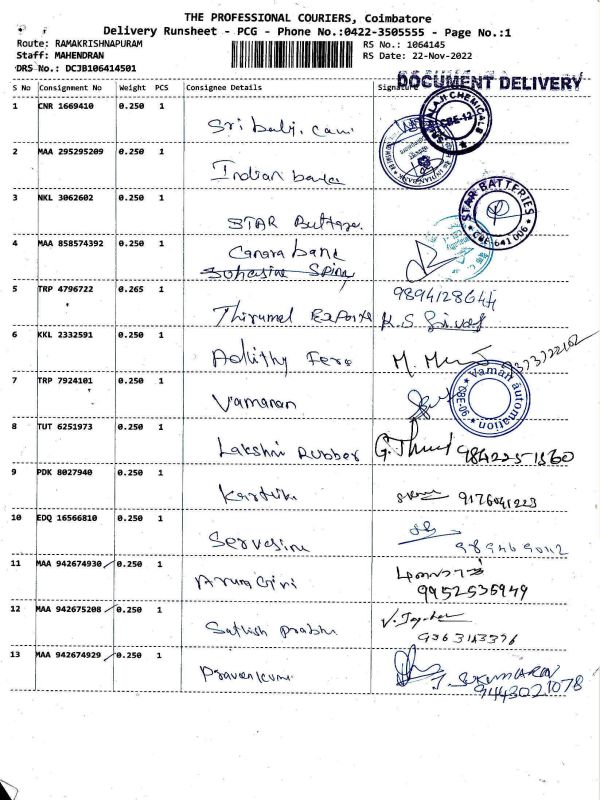 THE PROFESSIONAL COURIERS, Coimbatore
Delivery Runsheet - PCG - Phone No.:0422-3505555 - Page No.:1
Route: RAMAKRISHNAPURAM RS No.: 1064145
Staff: MAHENDRAN RS Date: 22-Nov-2022
DRS No.: DCJB106414501
DOCUMENT DELIVERY
S No Consignment No Weight PCS Consignee Details Signature
1 CNR 1669410 0.250 1
Sri balji.
CHEMICALS CBE-12
2 MAA 295295209 0.250 1
Indian bank
3 NKL 3062602 0.250 1
STAR
STAR BATTERIES CBE-641 006
4 MAA 858574392 0.250 1
Canara bank
5 TRP 4796722 0.265 1
9894128644
Thirumal Exports K.S.
6 KKL 2332591 0.250 1
Adhithy Fero M.
7 TRP 7924101 0.250 1
Vamanan
Vaman automation
8 TUT 6251973 0.250 1
Lakshmi Rubber G. 
9 PDK 8027940 0.250 1
Karthik 9176041223
10 EDQ 16566810 0.250 1
11 MAA 942674930 0.250 1
9952535949
12 MAA 942675208 0.250 1
Sathish prabhu
13 MAA 942674929 0.250 1
Pravenkumar
J. SUKUMARAN
9443021078